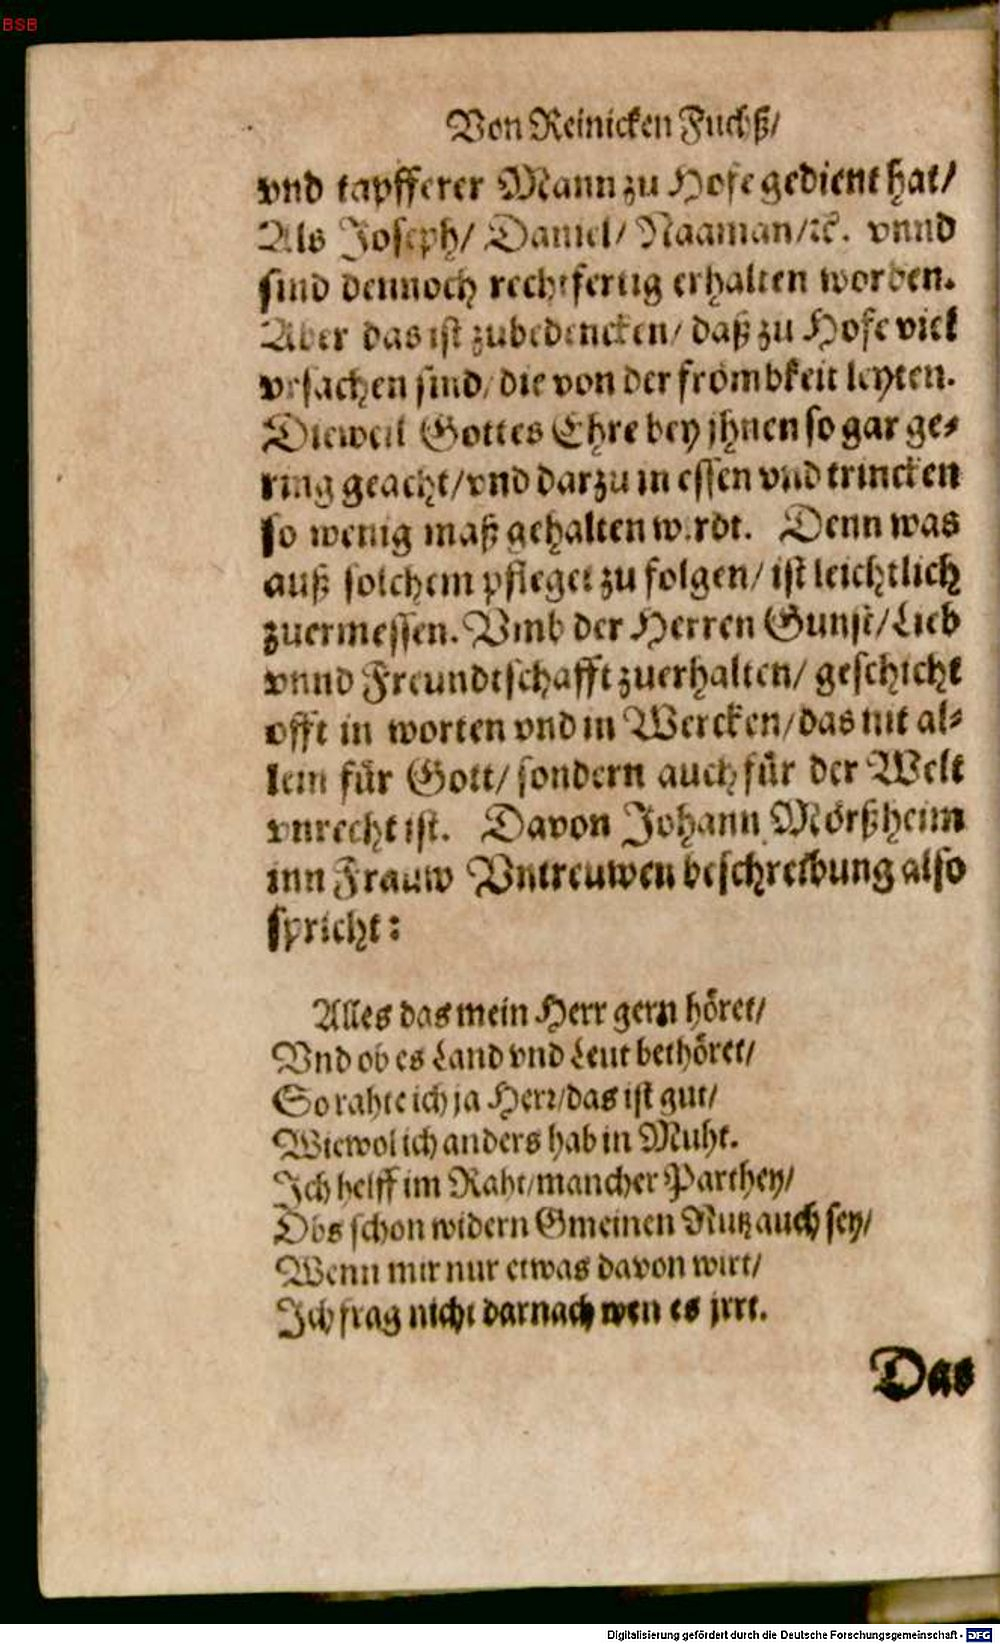 BSB
Von Reinicken Fuchß/
vnd tapfferer Mann zu Hofe gedient hat/
Als Joseph/ Daniel/ Naaman/ꝛc. vnnd
sind dennoch rechtfertig erhalten worden.
Aber das ist zubedencken/ daß zu Hofe viel
vrsachen sind/ die von der frömbkeit leyten.
Dieweil Gottes Ehre bey jhnen so gar ge⸗
ring geacht/ vnd darzu in essen vnd trincken
so wenig maß gehalten wirdt. Denn was
auß solchem pfleget zu folgen/ ist leichtlich
zuermessen. Vmb der Herren Gunst/ Lieb
vnnd Freundtschafft zuerhalten/ geschicht
offt in worten vnd in Wercken/ das nit al⸗
lein für Gott/ sondern auch für der Welt
vnrecht ist. Davon Johann Mörßheim
inn Frauw Vntreuwen beschreibung also
spricht:
Alles das mein Herr gern höret/
Vnd ob es Land vnd Leut bethöret/
So rahte ich ja Herr/ das ist gut/
Wiewol ich anders hab in Muht.
Ich helff im Raht/ mancher Parthey/
Obs schon widern Gmeinen Nutz auch sey/
Wenn mir nur etwas davon wirt/
Ich frag nicht darnach wen es jrrt.
Das
Digitalisierung gefördert durch die Deutsche Forschungsgemeinschaft - DFG